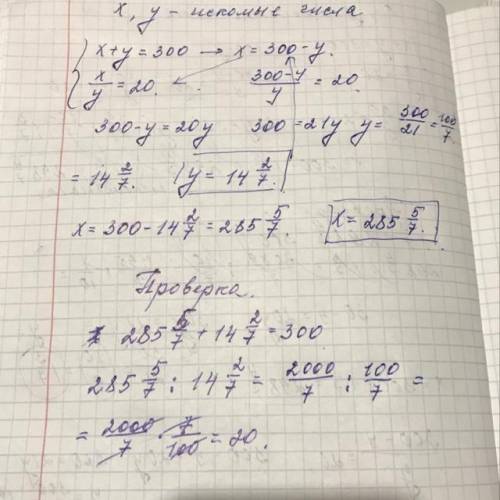 x, y – искомые числа
{ x+y=300 → x=300-y.
x/y=20. (300-y)/y=20.
300-y=20y 300=21y y=300/21=100/7
=14 2/7. y=14 2/7.
x=300-14 2/7=285 5/7. x=285 5/7.
Проверка.
285 5/7+14 2/7=300
285 5/7 : 14 2/7 = 2000/7 : 100/7 =
= 2000/7 · 7/100 = 20.